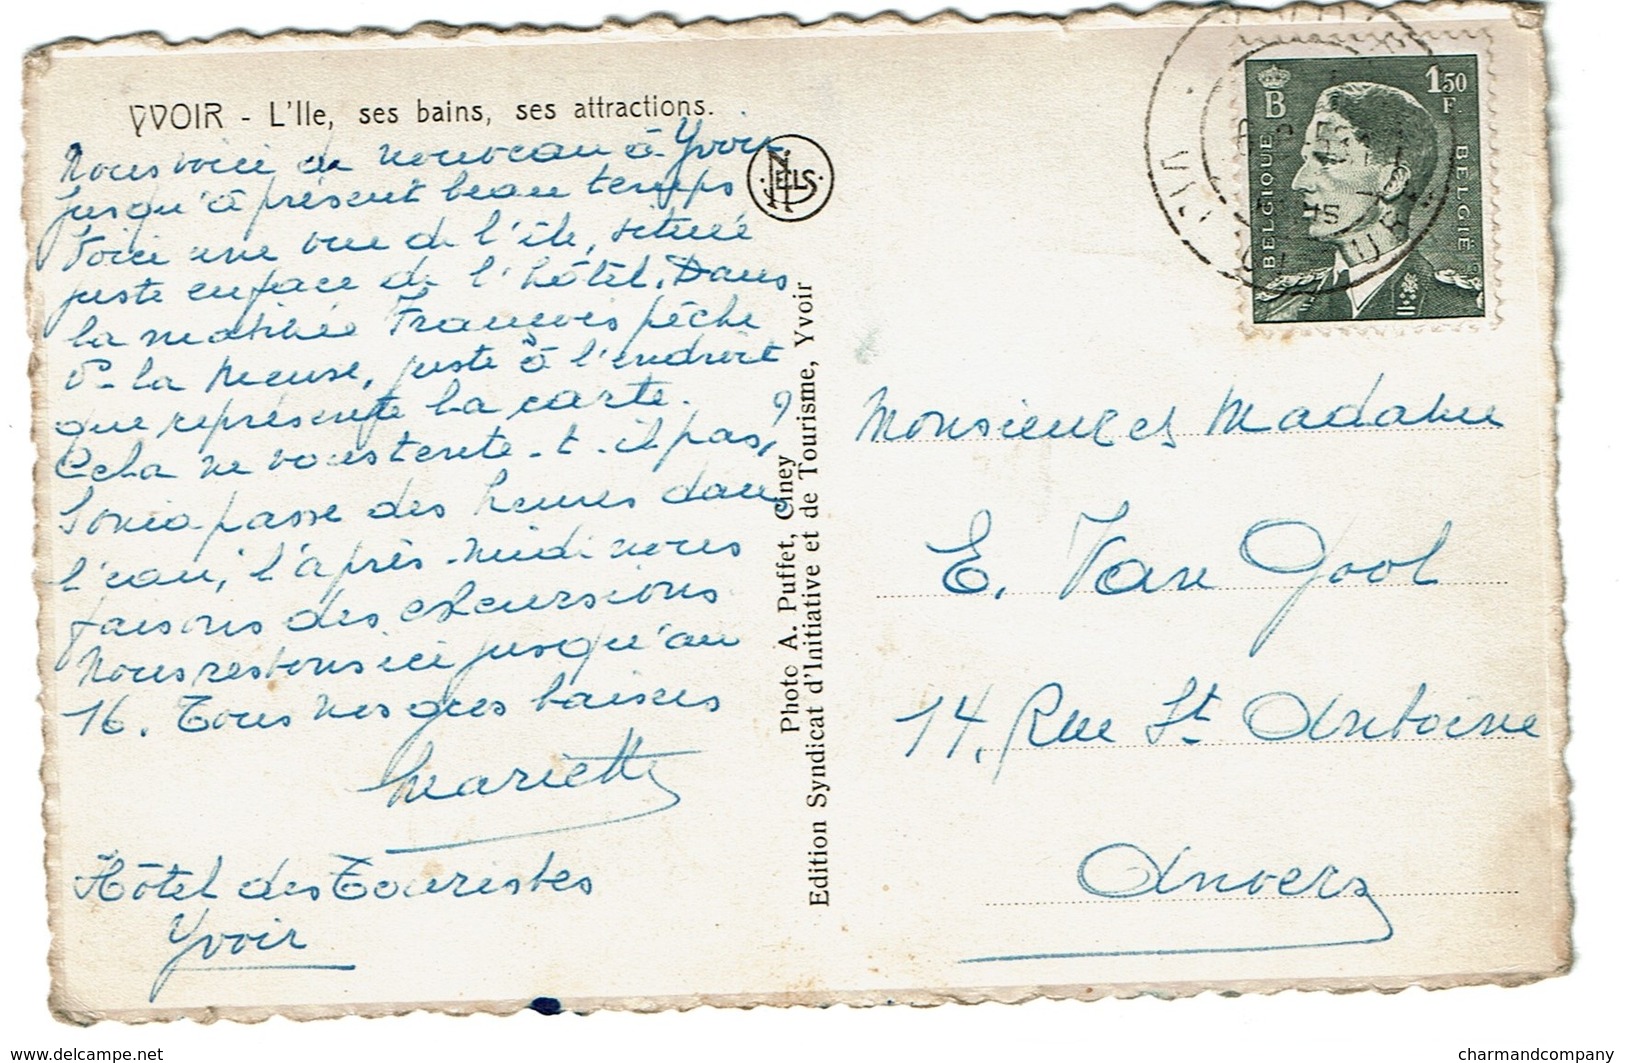 YVOIR - L'Ile, ses bains, ses attractions.
Nous voici de nouveau à Yvoir
Jusqu'à présent beau temps
Voici une vue de l'île, située
juste en face de l'hôtel. Dans
la matinée François pêche
la Meuse, juste à l'endroit
que représente la carte.
Cela ne vous tente-t-il pas?
Sonia passe des heures dans
l'eau, l'après-midi nous
faisons des excursions
Nous restons ici jusqu'au
16. Tous nos gros baisers
Mariette
Hôtel des Touristes
Yvoir
NELS
Photo A. Puffet, Ciney
Edition Syndicat d'Initiative et de Tourisme, Yvoir
B
1,50 F
BELGIQUE
BELGIË
Monsieur et Madame
E. Van Gool
14, Rue St Antoine
Anvers
www.delcampe.net
charmandcompany